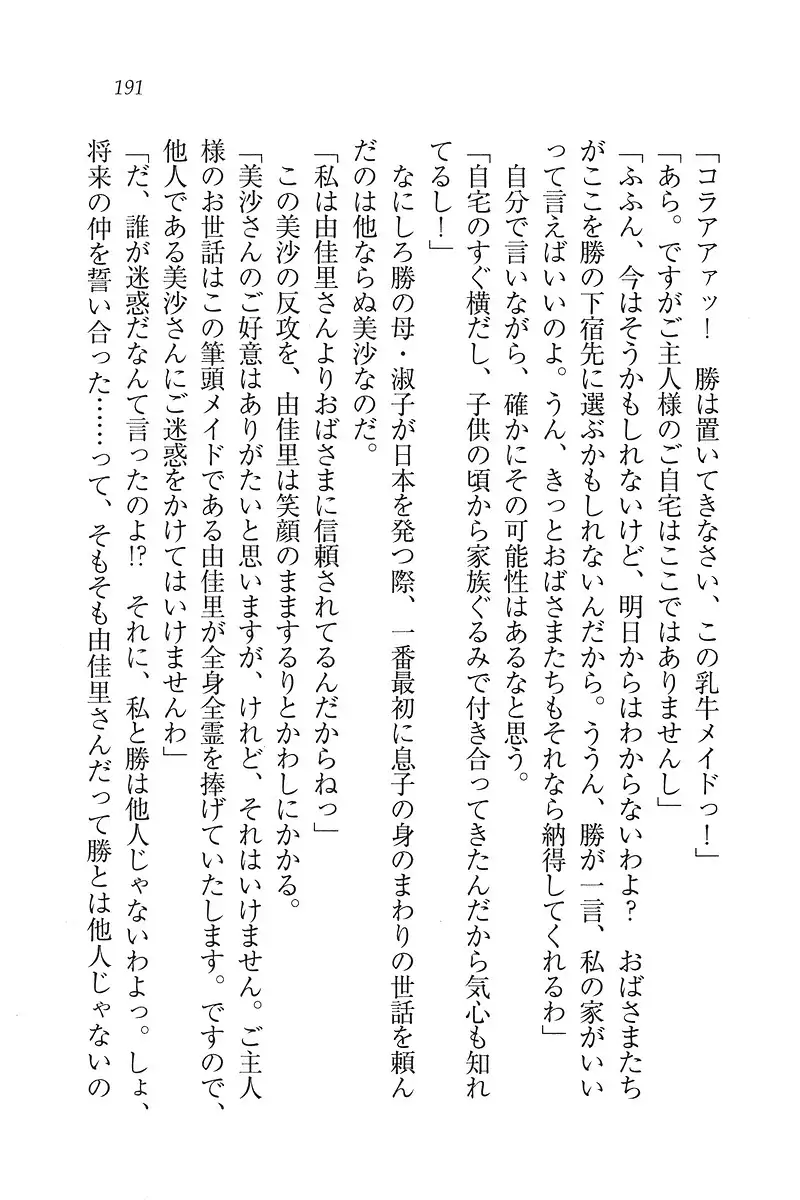 191
「コラアアァッ！　勝は置いてきなさい、この乳牛メイドっ！」
「あら。ですがご主人様のご自宅はここではありませんし」
「ふふん、今はそうかもしれないけど、明日からはわからないわよ？　おばさまたち
がここを勝の下宿先に選ぶかもしれないんだから。ううん、勝が一言、私の家がいい
って言えばいいのよ。うん、きっとおばさまたちもそれなら納得してくれるわ」
　自分で言いながら、確かにその可能性はあるなと思う。
「自宅のすぐ横だし、子供の頃から家族ぐるみで付き合ってきたんだから気心も知れ
てるし！」
　なにしろ勝の母・淑子が日本を発つ際、一番最初に息子の身のまわりの世話を頼ん
だのは他ならぬ美沙なのだ。
「私は由佳里さんよりおばさまに信頼されてるんだからねっ」
　この美沙の反攻を、由佳里は笑顔のままするりとかわしにかかる。
「美沙さんのご好意はありがたいと思いますが、けれど、それはいけません。ご主人
様のお世話はこの筆頭メイドである由佳里が全身全霊を捧げていたします。ですので、
他人である美沙さんにご迷惑をかけてはいけませんわ」
「だ、誰が迷惑だなんて言ったのよ!?　それに、私と勝は他人じゃないわよっ。しょ、
将来の仲を誓い合った……って、そもそも由佳里さんだって勝とは他人じゃないの